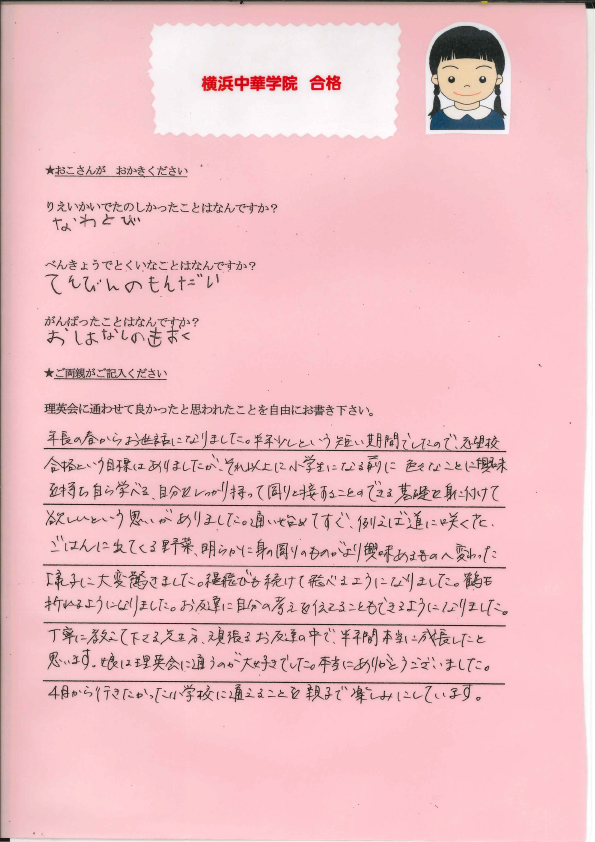 横浜中華学院 合格
★おこさんが おかきください
りえいかいでたのしかったことはなんですか？
なわとび
べんきょうでとくいなことはなんですか？
てんびんのもんだい
がんばったことはなんですか？
おはなしのきおく
★ご両親がご記入ください
理英会に通わせて良かったと思われたことを自由にお書き下さい。
年長の春からお世話になりました。半年少しという短い期間でしたので、志望校
合格という目標はありましたが、それ以上に小学生になる前に 色々なことに興味
を持ち自ら学べる、自分をしっかり持って周りと接することのできる基礎を身に付けて
欲しいという思いがありました。通い始めてすぐ、例えば道に咲く花、
ごはんに出てくる野菜、明らかに身の周りのものがより興味あるものへ変わった
様子に大変驚きました。縄飛びも続けて飛べるようになりました。鶴も
折れるようになりました。お友達に自分の考えを伝えることもできるようになりました。
丁寧に教えて下さる先生方、頑張るお友達の中で、半年間本当に成長したと
思います。娘は理英会に通うのが大好きでした。本当にありがとうございました。
4月から行きたかった小学校に通えることを親子で楽しみにしています。